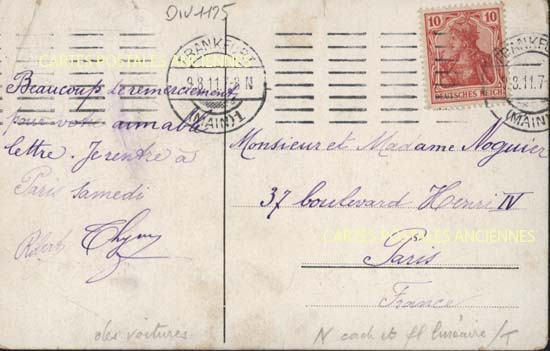 DIV1195
CARTES POSTALES ANCIENNES
FRANKFURT
9.8.11.7-8 N
(MAIN)1
10 10
DEUTSCHES REICH
FRANKFURT
8.11.7-
(MAIN)
Beaucoup de remerciement
pour votre aimable
lettre. Je rentre à
Paris samedi
Robert
Monsieur et Madame Noguier
37 boulevard Henri IV
CARTES POSTALES ANCIENNES
Paris
France
des voitures
N cach et